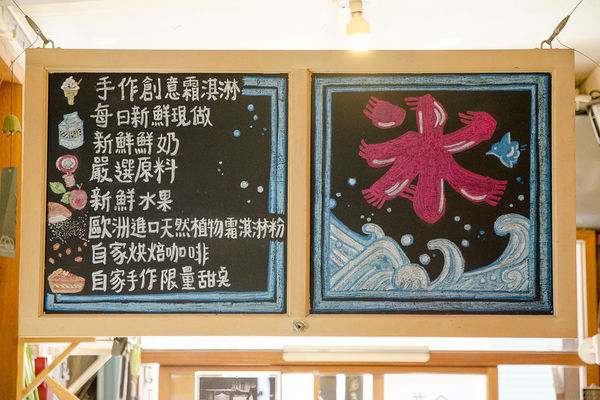 手作創意霜淇淋
每日新鮮現做
新鮮鮮奶
嚴選原料
新鮮水果
歐洲進口天然植物霜淇淋粉
自家烘焙咖啡
自家手作限量甜桌
氷